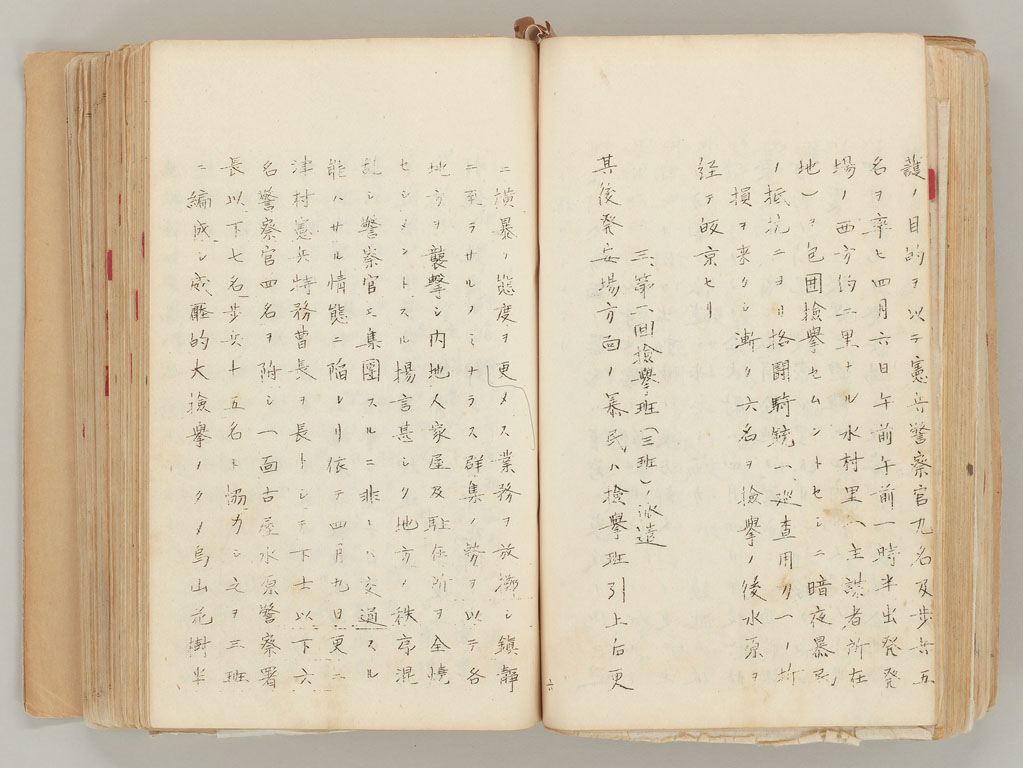 護ノ目的ヲ以テ憲兵警察官九名及歩兵五
名ヲ率ヒ四月六日午前午前一時半出発発
場ノ西方約二里ナル水村里(主謀者所在
地)ヲ包囲検挙セムントセシニ暗夜暴民
ノ抵抗ニヨリ格闘騎銃一、巡査用ノ一ノ折
損ヲ来タシ漸ク六名ヲ検挙ノ後水原ヲ
経テ皈京セリ
三、第二回検挙班(三班)ノ派遣
其後発安場方面ノ暴民ハ検挙班引上后更
ニ横暴ノ態度ヲ更メス業務ヲ放擲シ鎮静
ニ至ラサルノミナラス群集ノ勢ヲ以テ各
地方ヲ襲撃シ内地人家屋及駐在所ヲ全焼
セシメントスル揚言甚シク地方ノ秩序混
乱シ警察官モ集團スルニ非レハ交通スル
能ハサル情態ニ陥レリ依テ四月九日更ニ
津村憲兵特務曹長ヲ長トシテ下士以下六
名警察官四名ヲ附シ一面古屋水原警察署
長以下七名歩兵十五名ト協力シ之ヲ三班
ニ編成シ威圧的大検挙ノタメ烏山花樹半
六